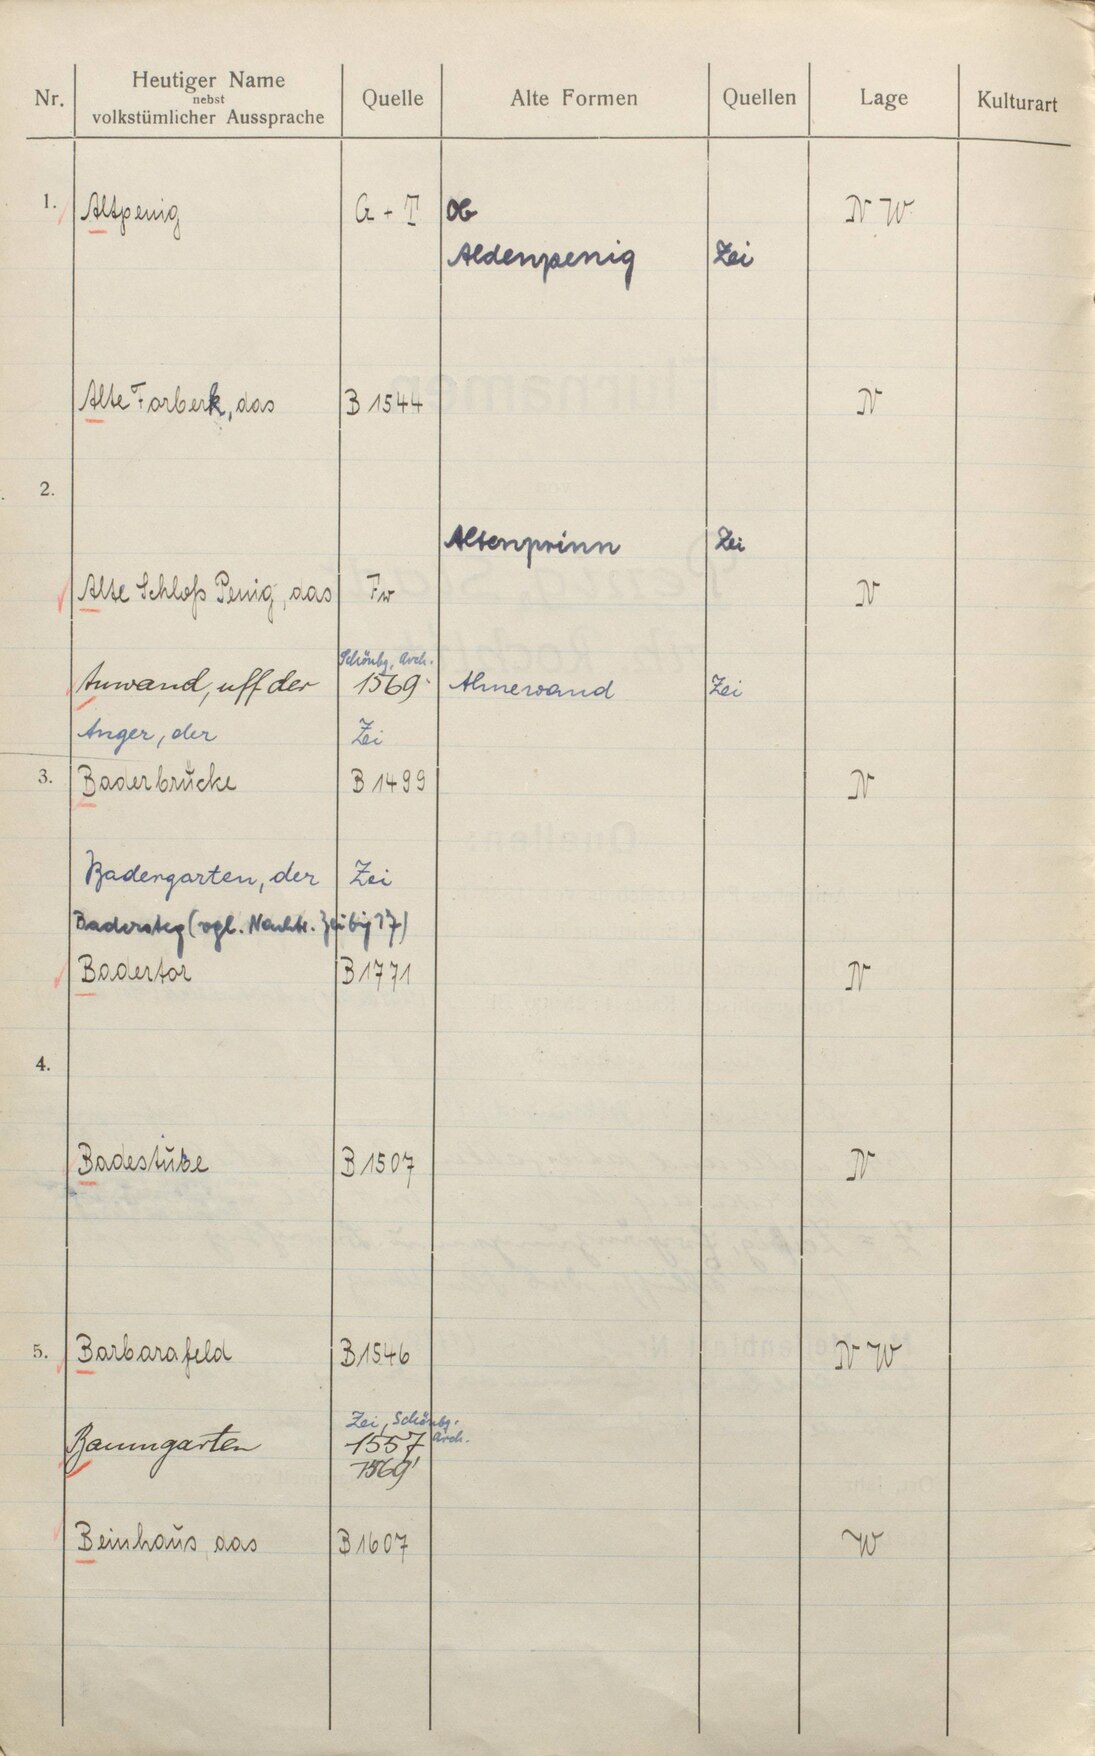 Nr. Heutiger Name nebst volkstümlicher Aussprache Quelle Alte Formen Quellen Lage Kulturart
1. Altpenig G + T Ob N W
Aldenpenig Zei
Alte Forberk, das B 1544 N
2.
Altenprinn Zei
Alte Schloß Penig, das Fw N
Schönbg. Arch.
Anwand, uff der 1569 Ahnewand Zei
Anger, der Zei
3. Baderbrücke B 1499 N
Badergarten, der Zei
Badersteg (vgl. Nachtr. Zeibig 17)
Badertor B 1771 N
4.
Badestube B 1507 N
5. Barbarafeld B 1546 N W
Zei, Schönbg. Arch.
Baumgarten 1557
1569
Beinhaus, das B 1607 W